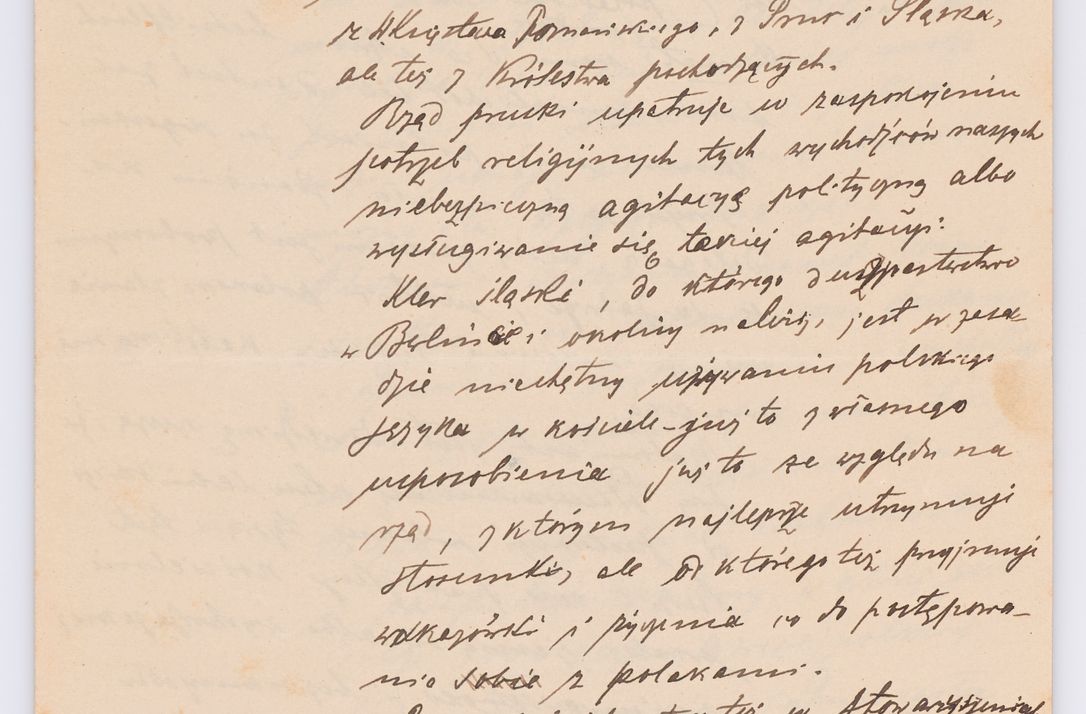 z W Księstwa Poznańskiego, z Prus i Śląska,
ale też z Królestwa pochodzących.
Rząd pruski upatruje w zaspokojeniu
potrzeb religijnych tych wychodźców naszych
niebezpieczną agitacyę polityczną albo
wysługiwanie się takiej agitacyi.
Kler śląski, do którego duszpasterstwo
w Berlinie i okolicy należy, jest w zasa-
dzie niechętny używaniu polskiego
języka w kościele - już to z własnego
usposobienia już to ze względu na
rząd, z którym najlepsze utrzymuje
stosunki, ale od którego też przyjmuje
wskazówki i życzenia co do postępowa-
nia sobie z polakami.
w Stowarzyszeniach